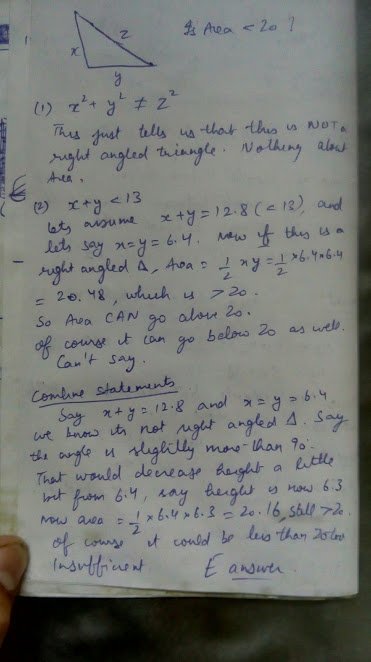 Is Area < 20 ?
x
z
y
(1) x² + y² ≠ z²
This just tells us that this is NOT a
right angled triangle. Nothing about
Area.
(2) x+y < 13
lets assume x+y = 12.8 (< 13), and
lets say x=y= 6.4. Now if this is a
right angled Δ, Area = 1/2 xy = 1/2 × 6.4 × 6.4
= 20.48, which is > 20.
So Area CAN go above 20.
Of course it can go below 20 as well.
Can't say.
Combine statements
Say x+y = 12.8 and x = y = 6.4
we know its not right angled Δ. Say
the angle is slightly more than 90°.
That would decrease height a little
bit from 6.4, say height is now 6.3
Now area = 1/2 × 6.4 × 6.3 = 20.16, still > 20.
Of course it could be less than 20 too
Insufficient E answer.